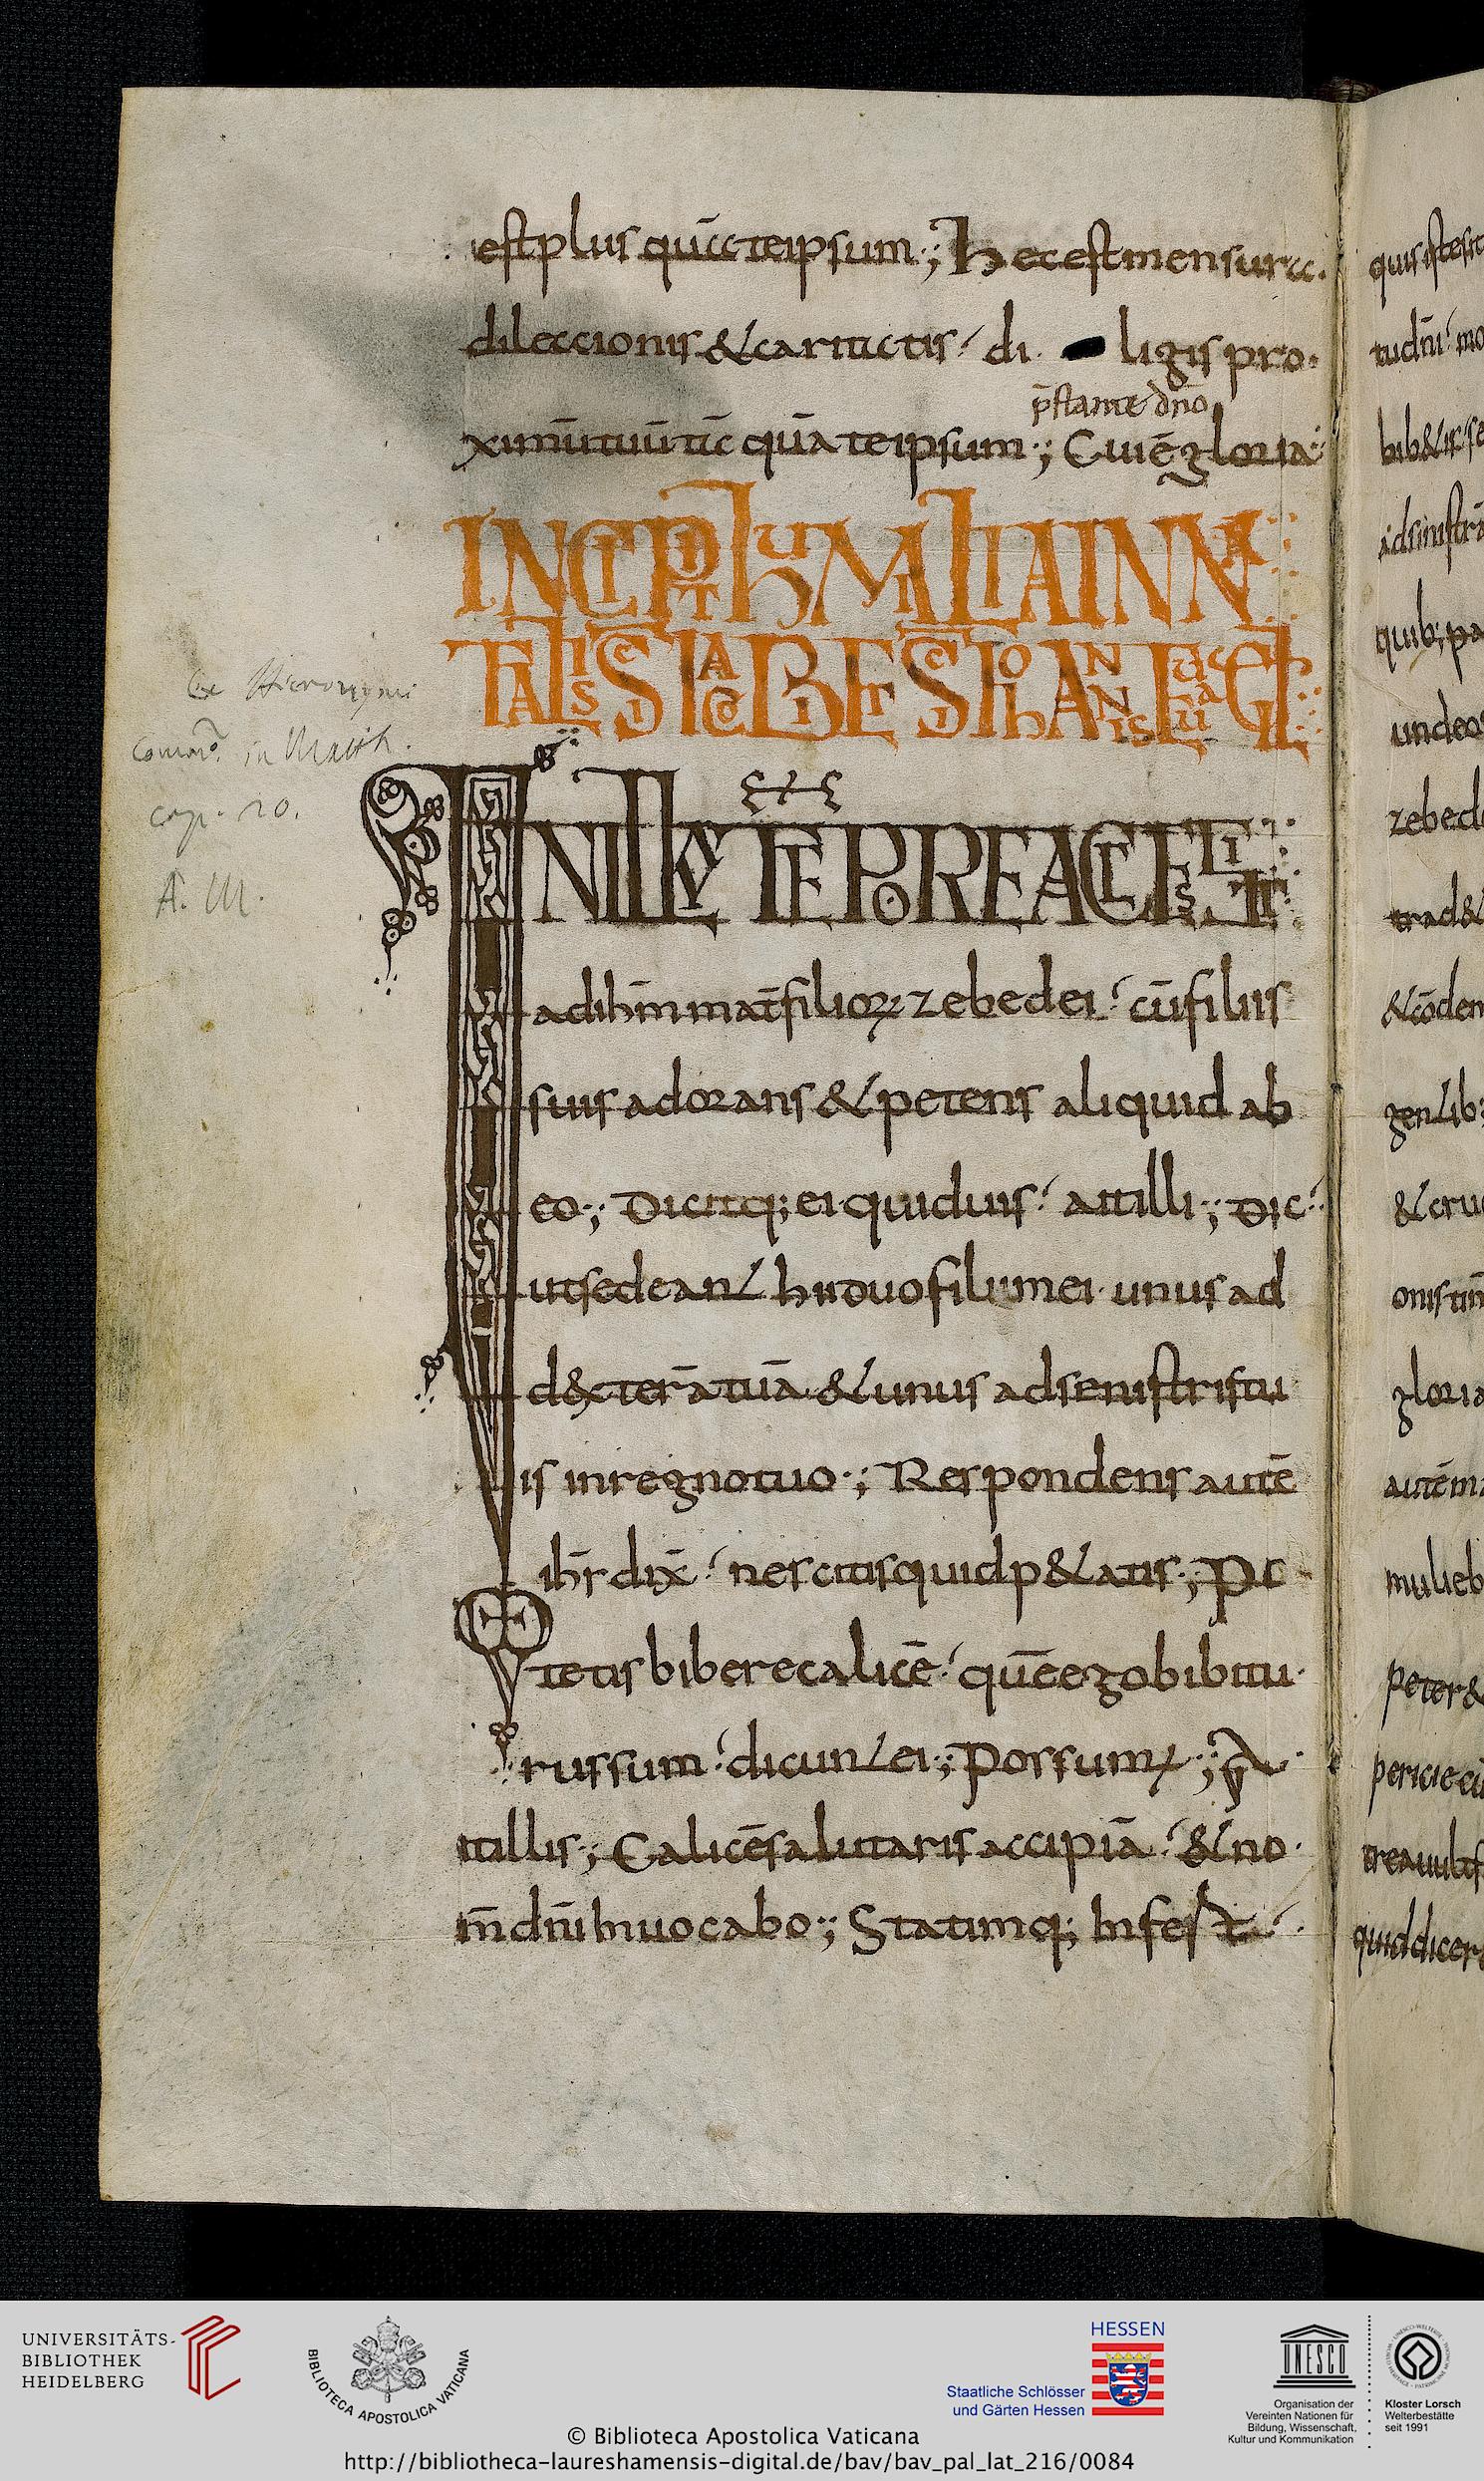 est plus quā teipsum·; Hec est mensura
dileccionis & caritatis · di ligis pro
p̄stante dño
ximū tuū tā quā teipsum·; Cui ē gloria
INCIPIT HUMILIA IN NA
TALI SCI IACOBI ET SCI IOHANNIS EUANGEL
Ex Hieronymi
comm. in Matth.
cap. 20.
A. M.
IN ILLO TĒPORE ACCESSIT
ad ihm̄ mat̄ filioꝝ zebedei · cū filiis
suis adorans & petens aliquid ab
eo·; Dicitq; ei quid uis · ait illi·; Dic
ut sedeant hii duo filii mei unus ad
dexterā tuā & unus ad senistris tu
is in regno tuo·; Respondens autē
ihs̄ dix̄ · nescitis quid p&atis·; Po
tetis bibere calicē · quē ego bibitu
rus sum · dicunt ei·; Possumꝰ·; A
it illis·; Calicē salutaris accipiā · & no
m̄ dnī inuocabo·; Statimq; infest
quis iste sit
tudnī mo
bib& ir se
ad sinistrā
quib; pa
unde o
zebed
trad&
& cōden
gentib;
& cru
onis tīm
gloria
autē m
mulieb
peter&
pericie ei
tre auulsis
quid dicere
UNIVERSITÄTS-
BIBLIOTHEK
HEIDELBERG
BIBLIOTECA APOSTOLICA VATICANA
HESSEN
Staatliche Schlösser
und Gärten Hessen
UNESCO
Organisation der
Vereinten Nationen für
Bildung, Wissenschaft,
Kultur und Kommunikation
Kloster Lorsch
Welterbestätte
seit 1991
© Biblioteca Apostolica Vaticana
http://bibliotheca-laureshamensis-digital.de/bav/bav_pal_lat_216/0084